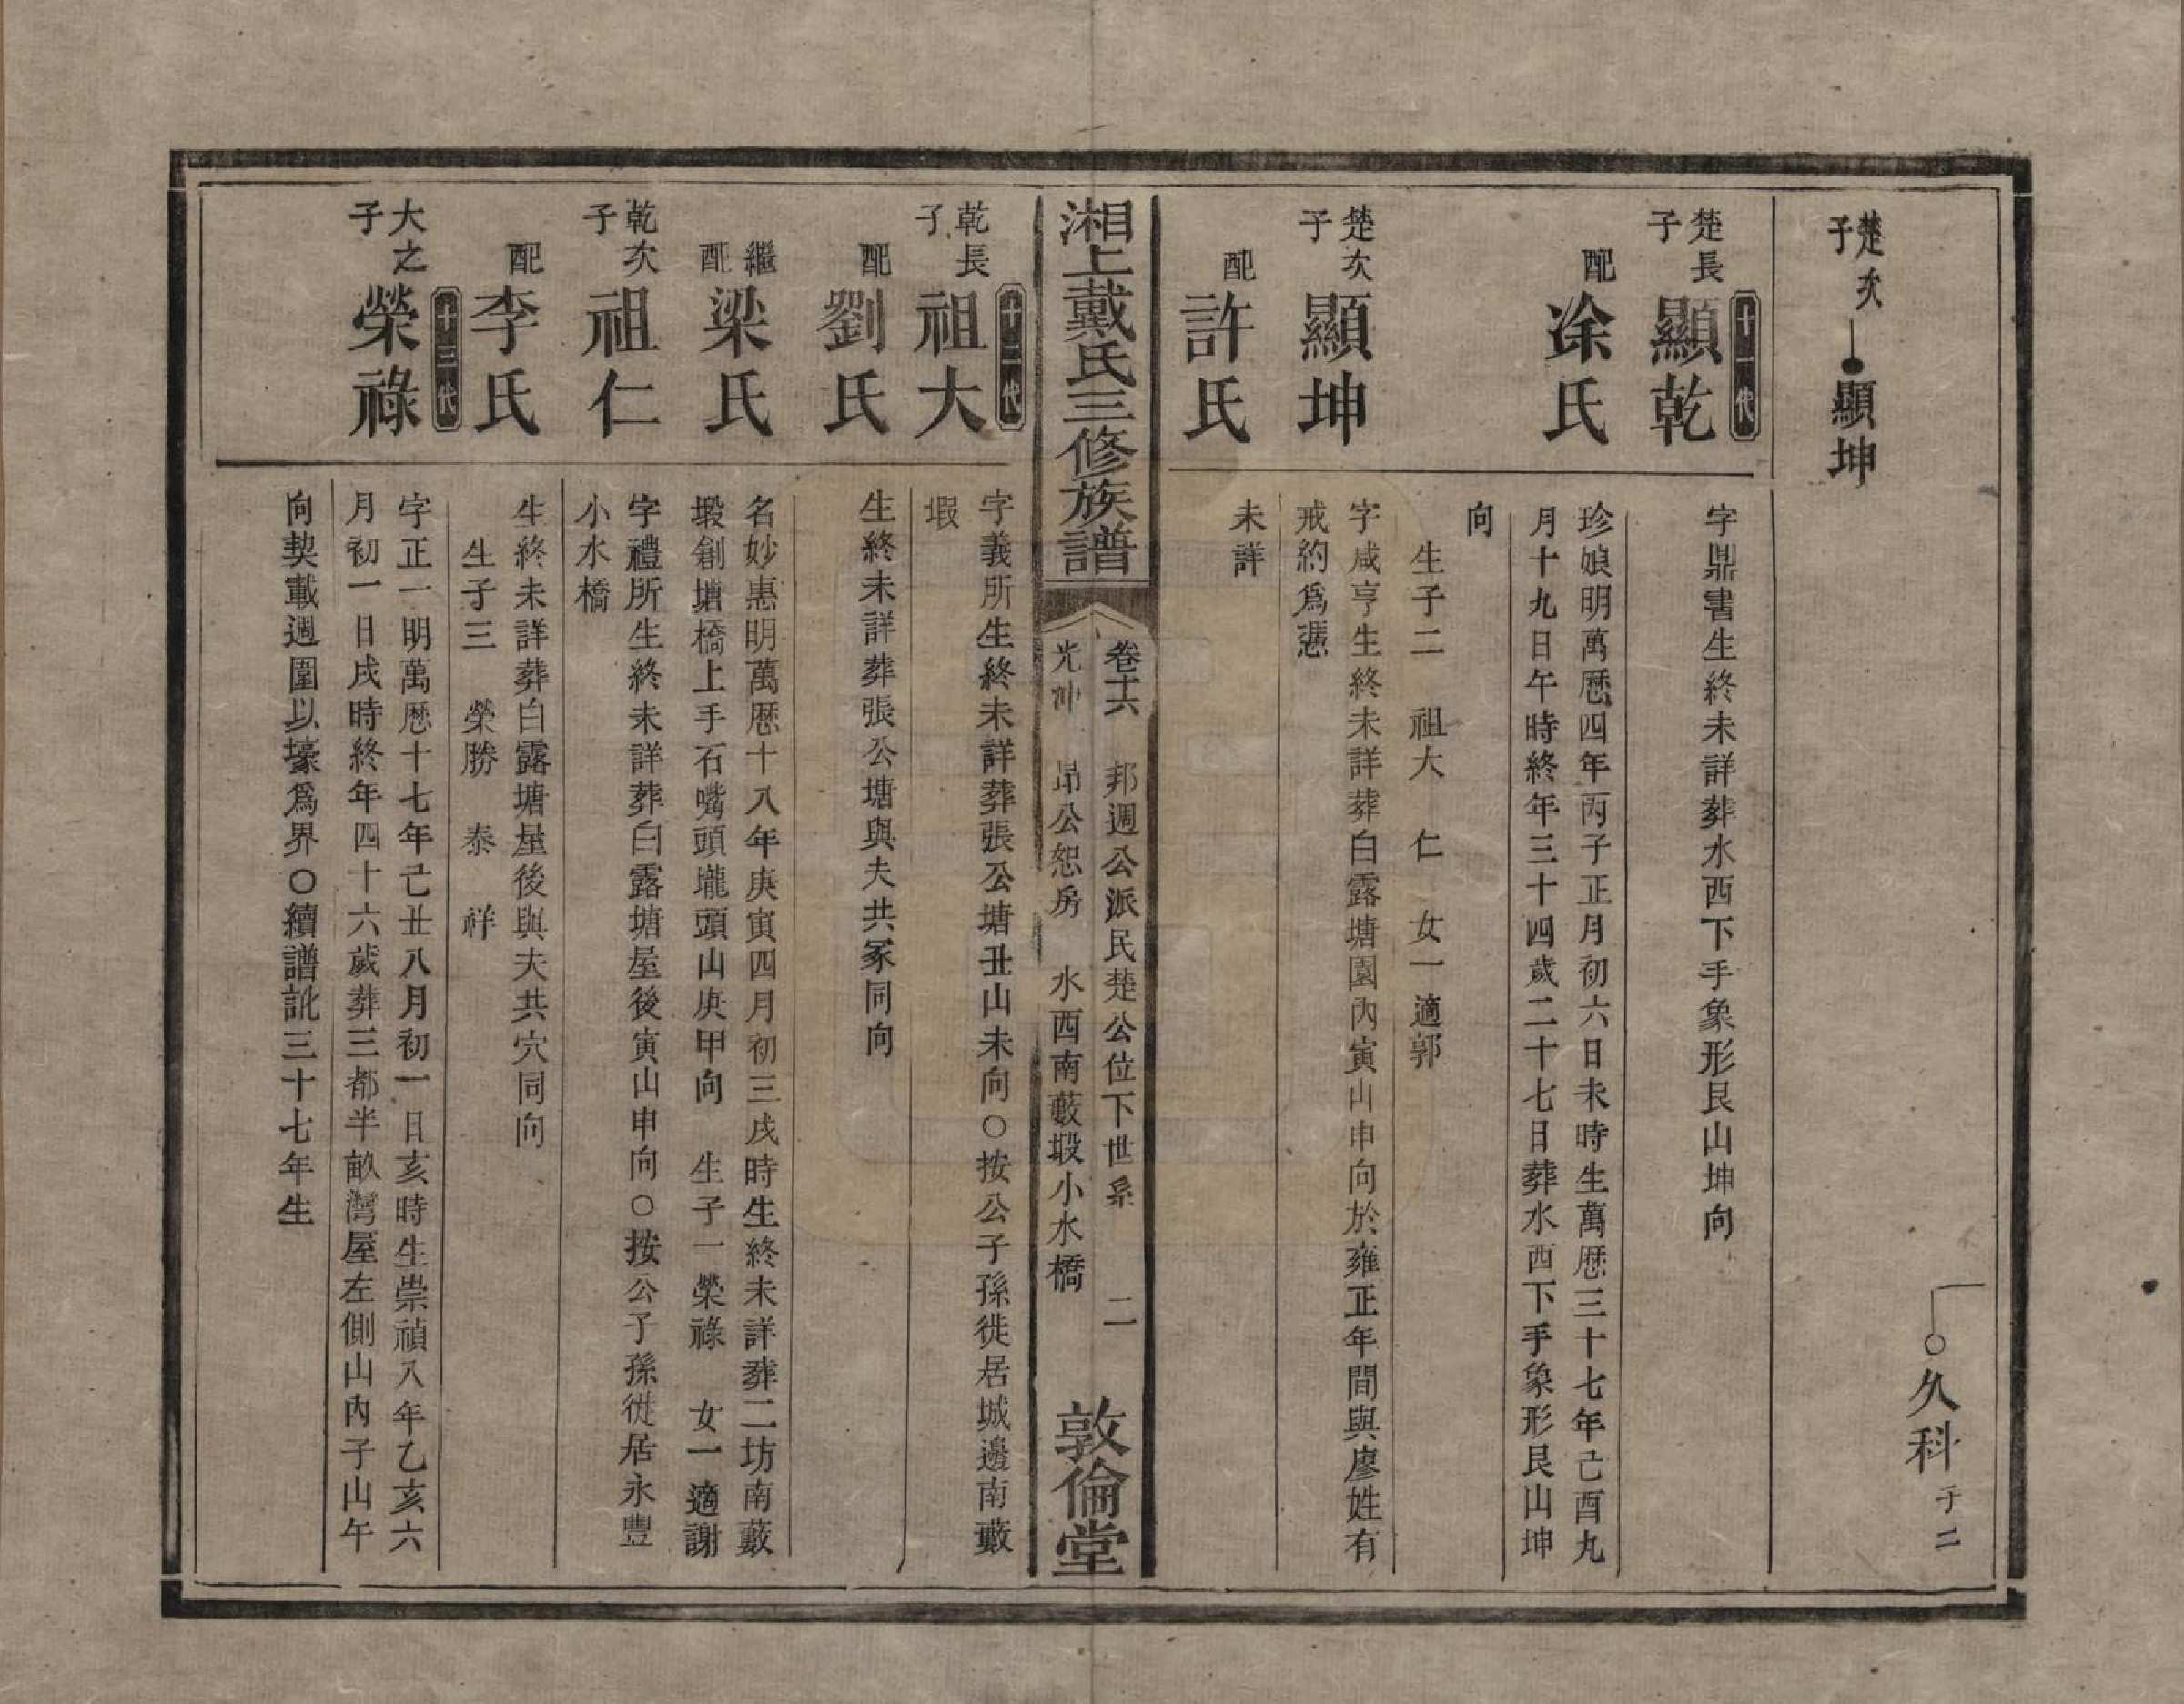 楚次子 顯坤
久科 子二
十一代
楚長子 顯乾
字鼎書生終未詳葬水西下手象形艮山坤向
配 凃氏
珍娘明萬歷四年丙子正月初六日未時生萬歷三十七年己酉九
月十九日午時終年三十四歲二十七日葬水西下手象形艮山坤
向
生子二 祖大 仁 女一適郭
楚次子 顯坤
字咸亨生終未詳葬白露塘園內寅山申向於雍正年間與廖姓有
戒約爲憑
配 許氏
未詳
湘上戴氏三修族譜
卷十六 邦週公派民楚公位下世系 二
光坤 昂公恕房 水西南藪塅小水橋
敦倫堂
十二代
乾長子 祖大
字義所生終未詳葬張公塘丑山未向○按公子孫徙居城邊南藪
塅
配 劉氏
生終未詳葬張公塘與夫共冢同向
繼配 梁氏
名妙惠明萬歷十八年庚寅四月初三戌時生終未詳葬二坊南藪
塅創塘橋上手石嘴頭壠頭山庚甲向 生子一榮祿 女一適謝
乾次子 祖仁
字禮所生終未詳葬白露塘屋後寅山申向○按公子孫徙居永豐
小水橋
配 李氏
生終未詳葬白露塘屋後與夫共穴同向
生子三 榮勝 泰 祥
十三代
大之子 榮祿
字正一明萬歷十七年己丑八月初一日亥時生崇禎八年乙亥六
月初一日戌時終年四十六歲葬三都半畝灣屋左側山內子山午
向契載週圍以壕爲界○續譜訛三十七年生